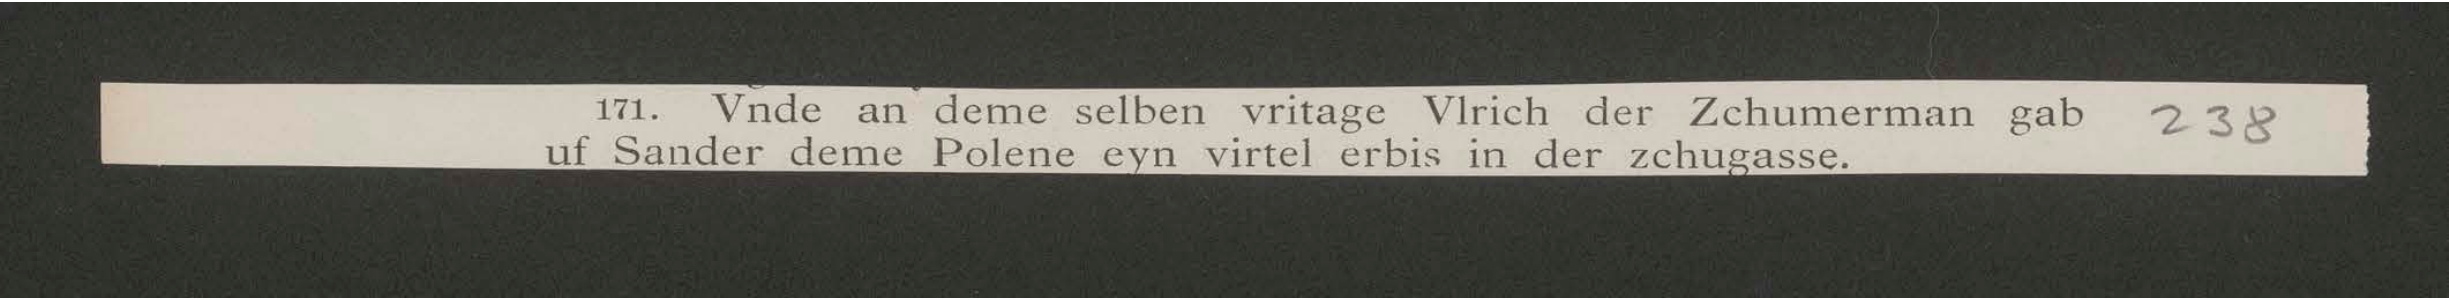 171. Vnde an deme selben vritage Vlrich der Zchumerman gab 238
uf Sander deme Polene eyn virtel erbis in der zchugasse.